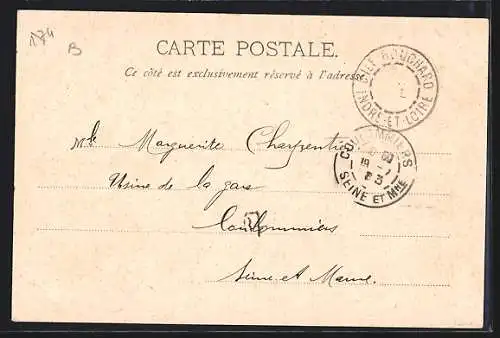 174
B
CARTE POSTALE.
Ce côté est exclusivement réservé à l'adresse
L'ILE BOUCHARD
INDRE-ET-LOIRE
COULOMMIERS
SEINE ET MNE
Mlle Marguerite Charpentier
Usine de la gare
Coulommiers
Seine et Marne.